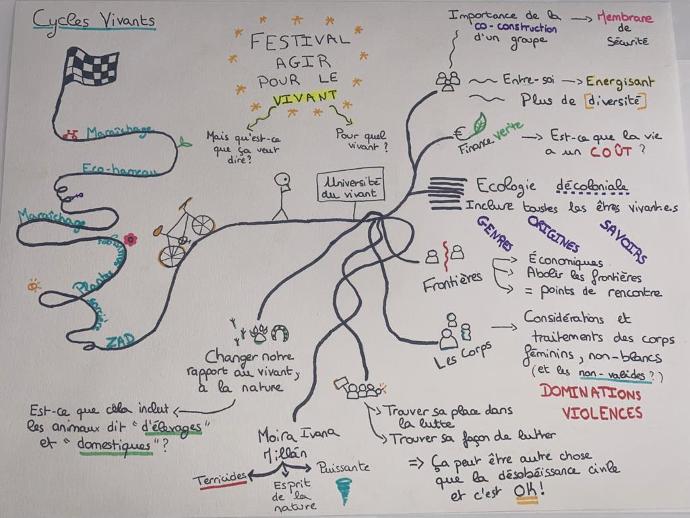 Cycles Vivants
Maraîchage
Eco-hameau
Maraîchage
Plantes
ZAD
FESTIVAL
AGIR
POUR LE
VIVANT
Mais qu'est-ce
que ça veut
dire?
Pour quel
vivant?
Université
du vivant
Importance de la
co-construction
d'un groupe
Membrane
de
Sécurité
Entre-soi
Energisant
Plus de [diversité]
€
Finance verte
Est-ce que la vie
a un COÛT ?
Ecologie décoloniale
Inclure toutes les êtres vivant.es
GENRES
ORIGINES
SAVOIRS
Frontières
Économiques
Abolir les frontières
= points de rencontre
Les Corps
Considérations et
traitements des corps
féminins, non-blancs
(et les non-valides?)
DOMINATIONS
VIOLENCES
Changer notre
rapport au vivant,
à la nature
Est-ce que cela inclut
les animaux dit "d'élevages"
et "domestiques"?
Moira Ivana
Millán
Terricides
Esprit
de la
nature
Puissante
Trouver sa place dans
la lutte
Trouver sa façon de lutter
=> Ça peut être autre chose
que la désobéissance civile
et c'est OK!